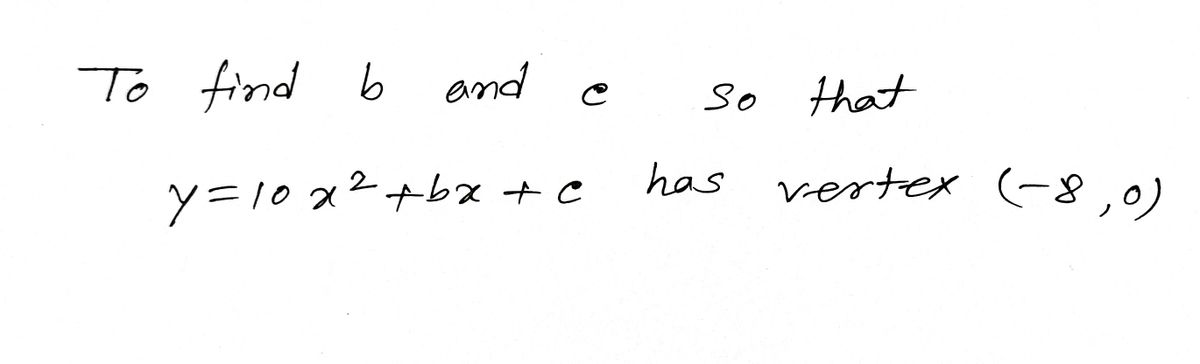 To find b and c so that
y=10x²+bx+c has vertex (-8,0)